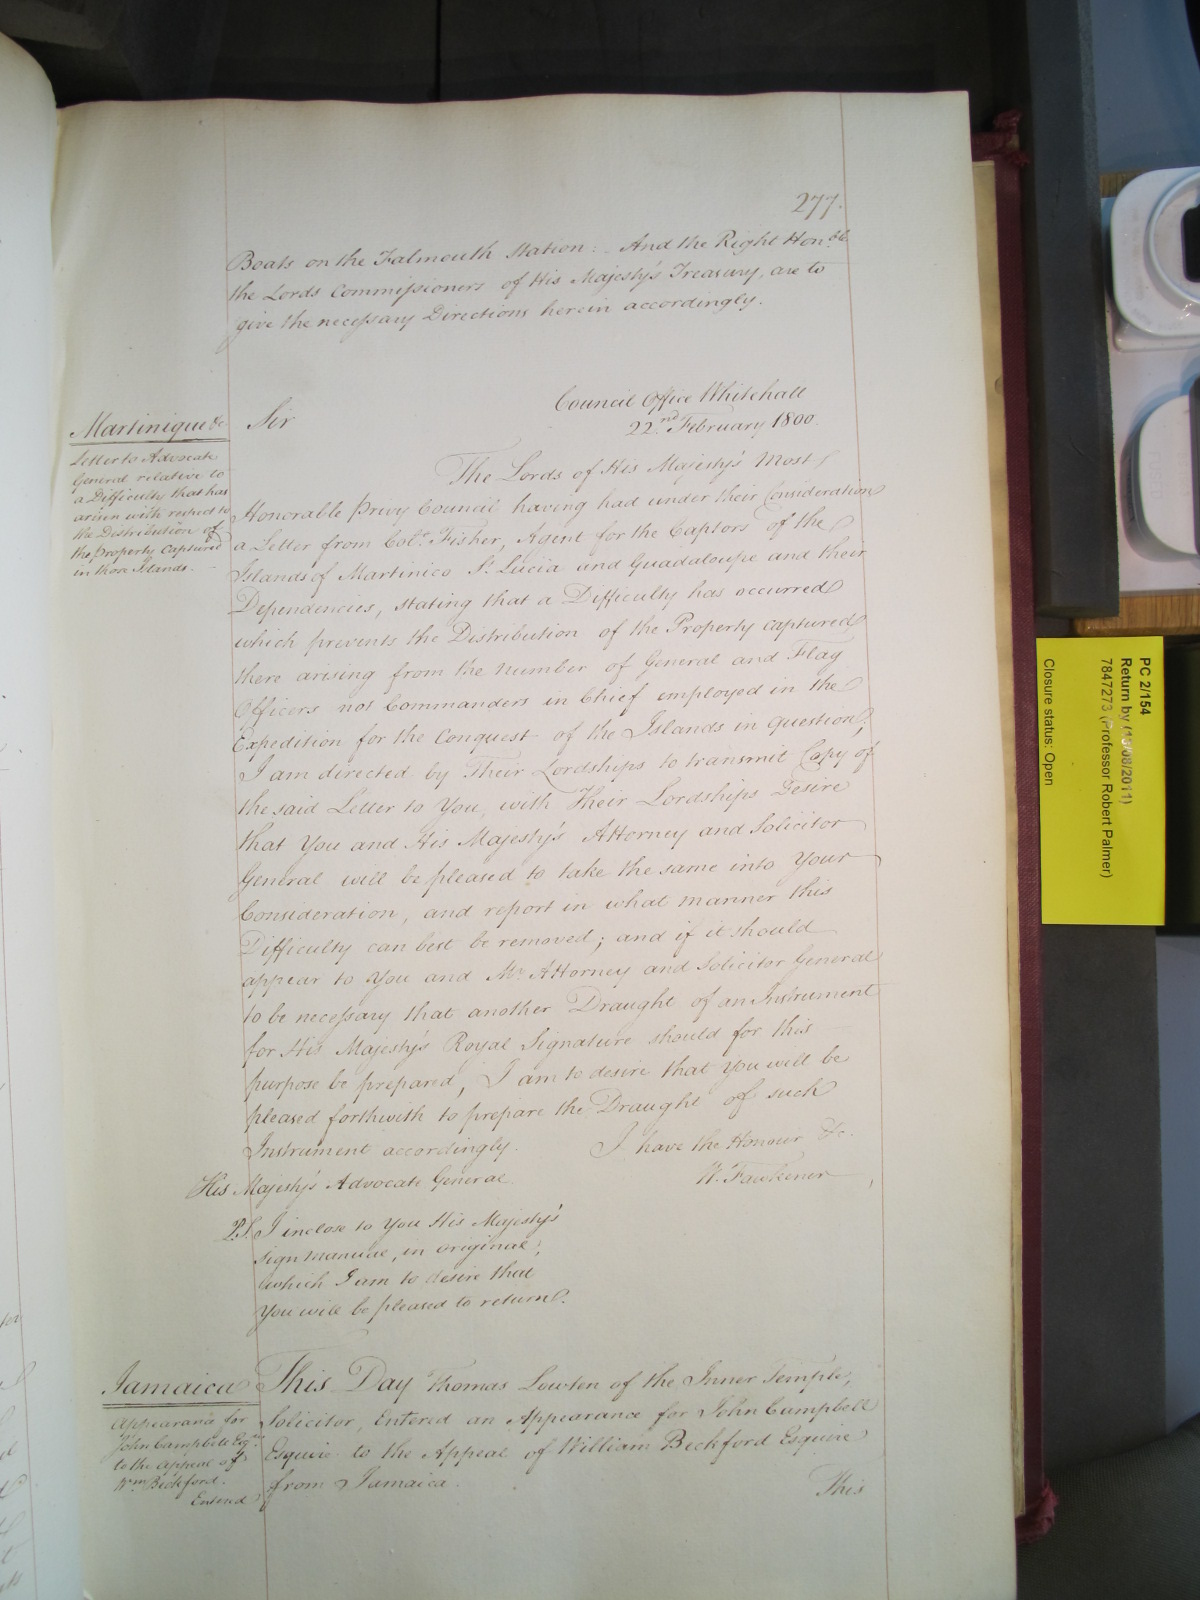 277.
Boats on the Falmouth Station: And the Right Hon.ble
the Lords Commissioners of His Majesty's Treasury, are to
give the necessary Directions herein accordingly.
Council Office Whitehall
22.nd February 1800.
Martinique &c
Letter to Advocate
General relative to
a Difficulty that has
arisen with respect to
the Distribution of
the Property Captured
in those Islands.
Sir
The Lords of His Majesty's Most
Honorable Privy Council having had under their Consideration
a Letter from Col.º Fisher, Agent for the Captors of the
Islands of Martinico St. Lucia and Guadaloupe and their
Dependencies, stating that a Difficulty has occurred
which prevents the Distribution of the Property captured
there arising from the number of General and Flag
Officers not Commanders in Chief employed in the
Expedition for the Conquest of the Islands in question,
I am directed by Their Lordships to transmit Copy of
the said Letter to You, with Their Lordships Desire
that You and His Majesty's Attorney and Solicitor
General will be pleased to take the same into Your
Consideration, and report in what manner this
Difficulty can best be removed; and if it should
appear to You and Mr. Attorney and Solicitor General
to be necessary that another Draught of an Instrument
for His Majesty's Royal Signature should for this
purpose be prepared, I am to desire that You will be
pleased forthwith to prepare the Draught of such
Instrument accordingly. I have the Honour &c.
His Majesty's Advocate General. W. Fawkener
P.S. I inclose to You His Majesty's
Sign manual, in original,
which I am to desire that
You will be pleased to return.
Jamaica
Appearance for
John Campbell Esq.re
to the Appeal of
Wm. Beckford.
Entered
This Day Thomas Lowten of the Inner Temple,
Solicitor, Entered an Appearance for John Campbell
Esquire to the Appeal of William Beckford Esquire
from Jamaica.
This
PC 2/154
Return by (13/08/2011)
7847273 (Professor Robert Palmer)
Closure status: Open